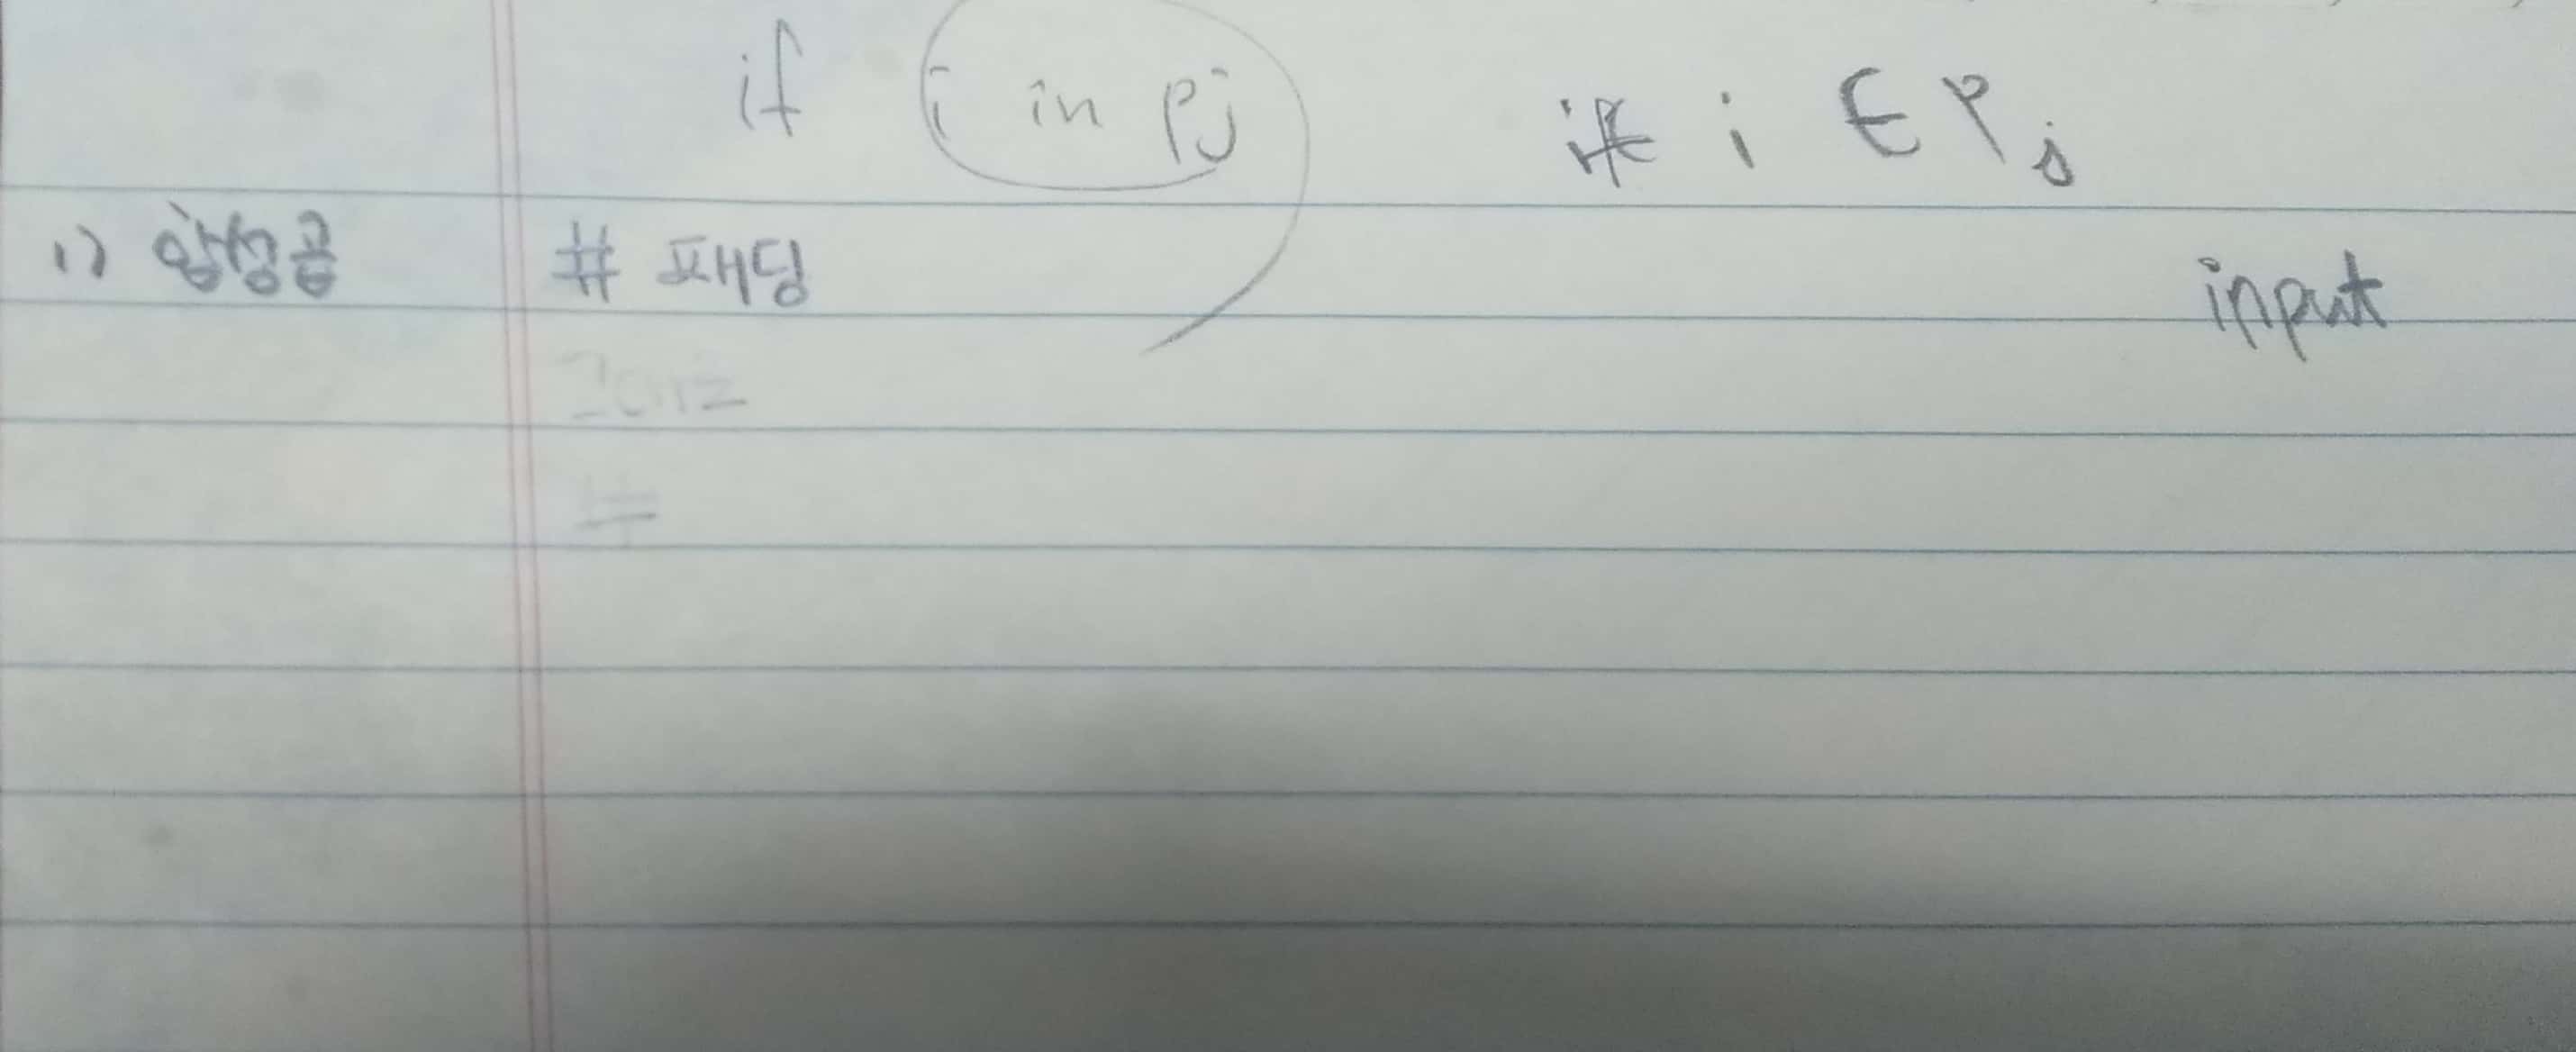 if i in Pj if i ∈ Pj
1) 합성곱 # 패딩
input